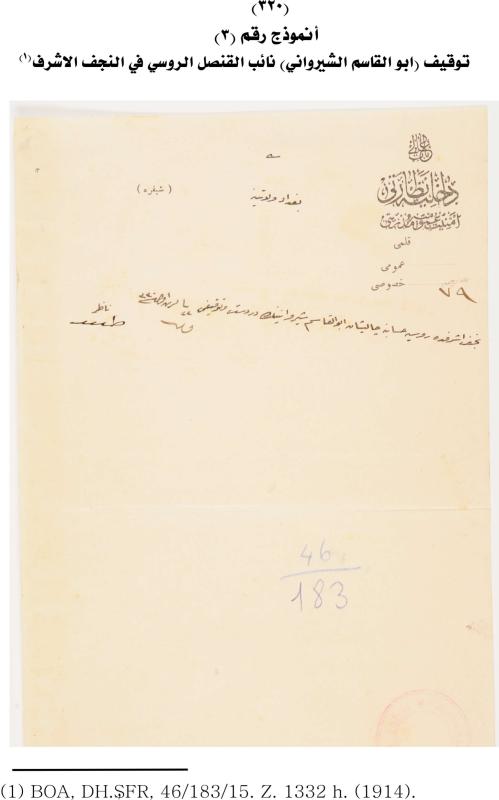 (٣٢٠)
أنموذج رقم (٣)
توقيف (ابو القاسم الشيرواني) نائب القنصل الروسي في النجف الاشرف(١)
باب عالی
داخلیه نظارتی
امنیت عمومیه مدیریتی
قلمی
عمومی
خصوصی
٧٩
(شیفره)
بغداد ولایتینه
نجف اشرفده روسیه حسابنه چالیشان ابو القاسم شیروانینك دردست وتوقیفی
ناظر
طلعت
46
183
(1) BOA, DH.ŞFR, 46/183/15. Z. 1332 h. (1914).